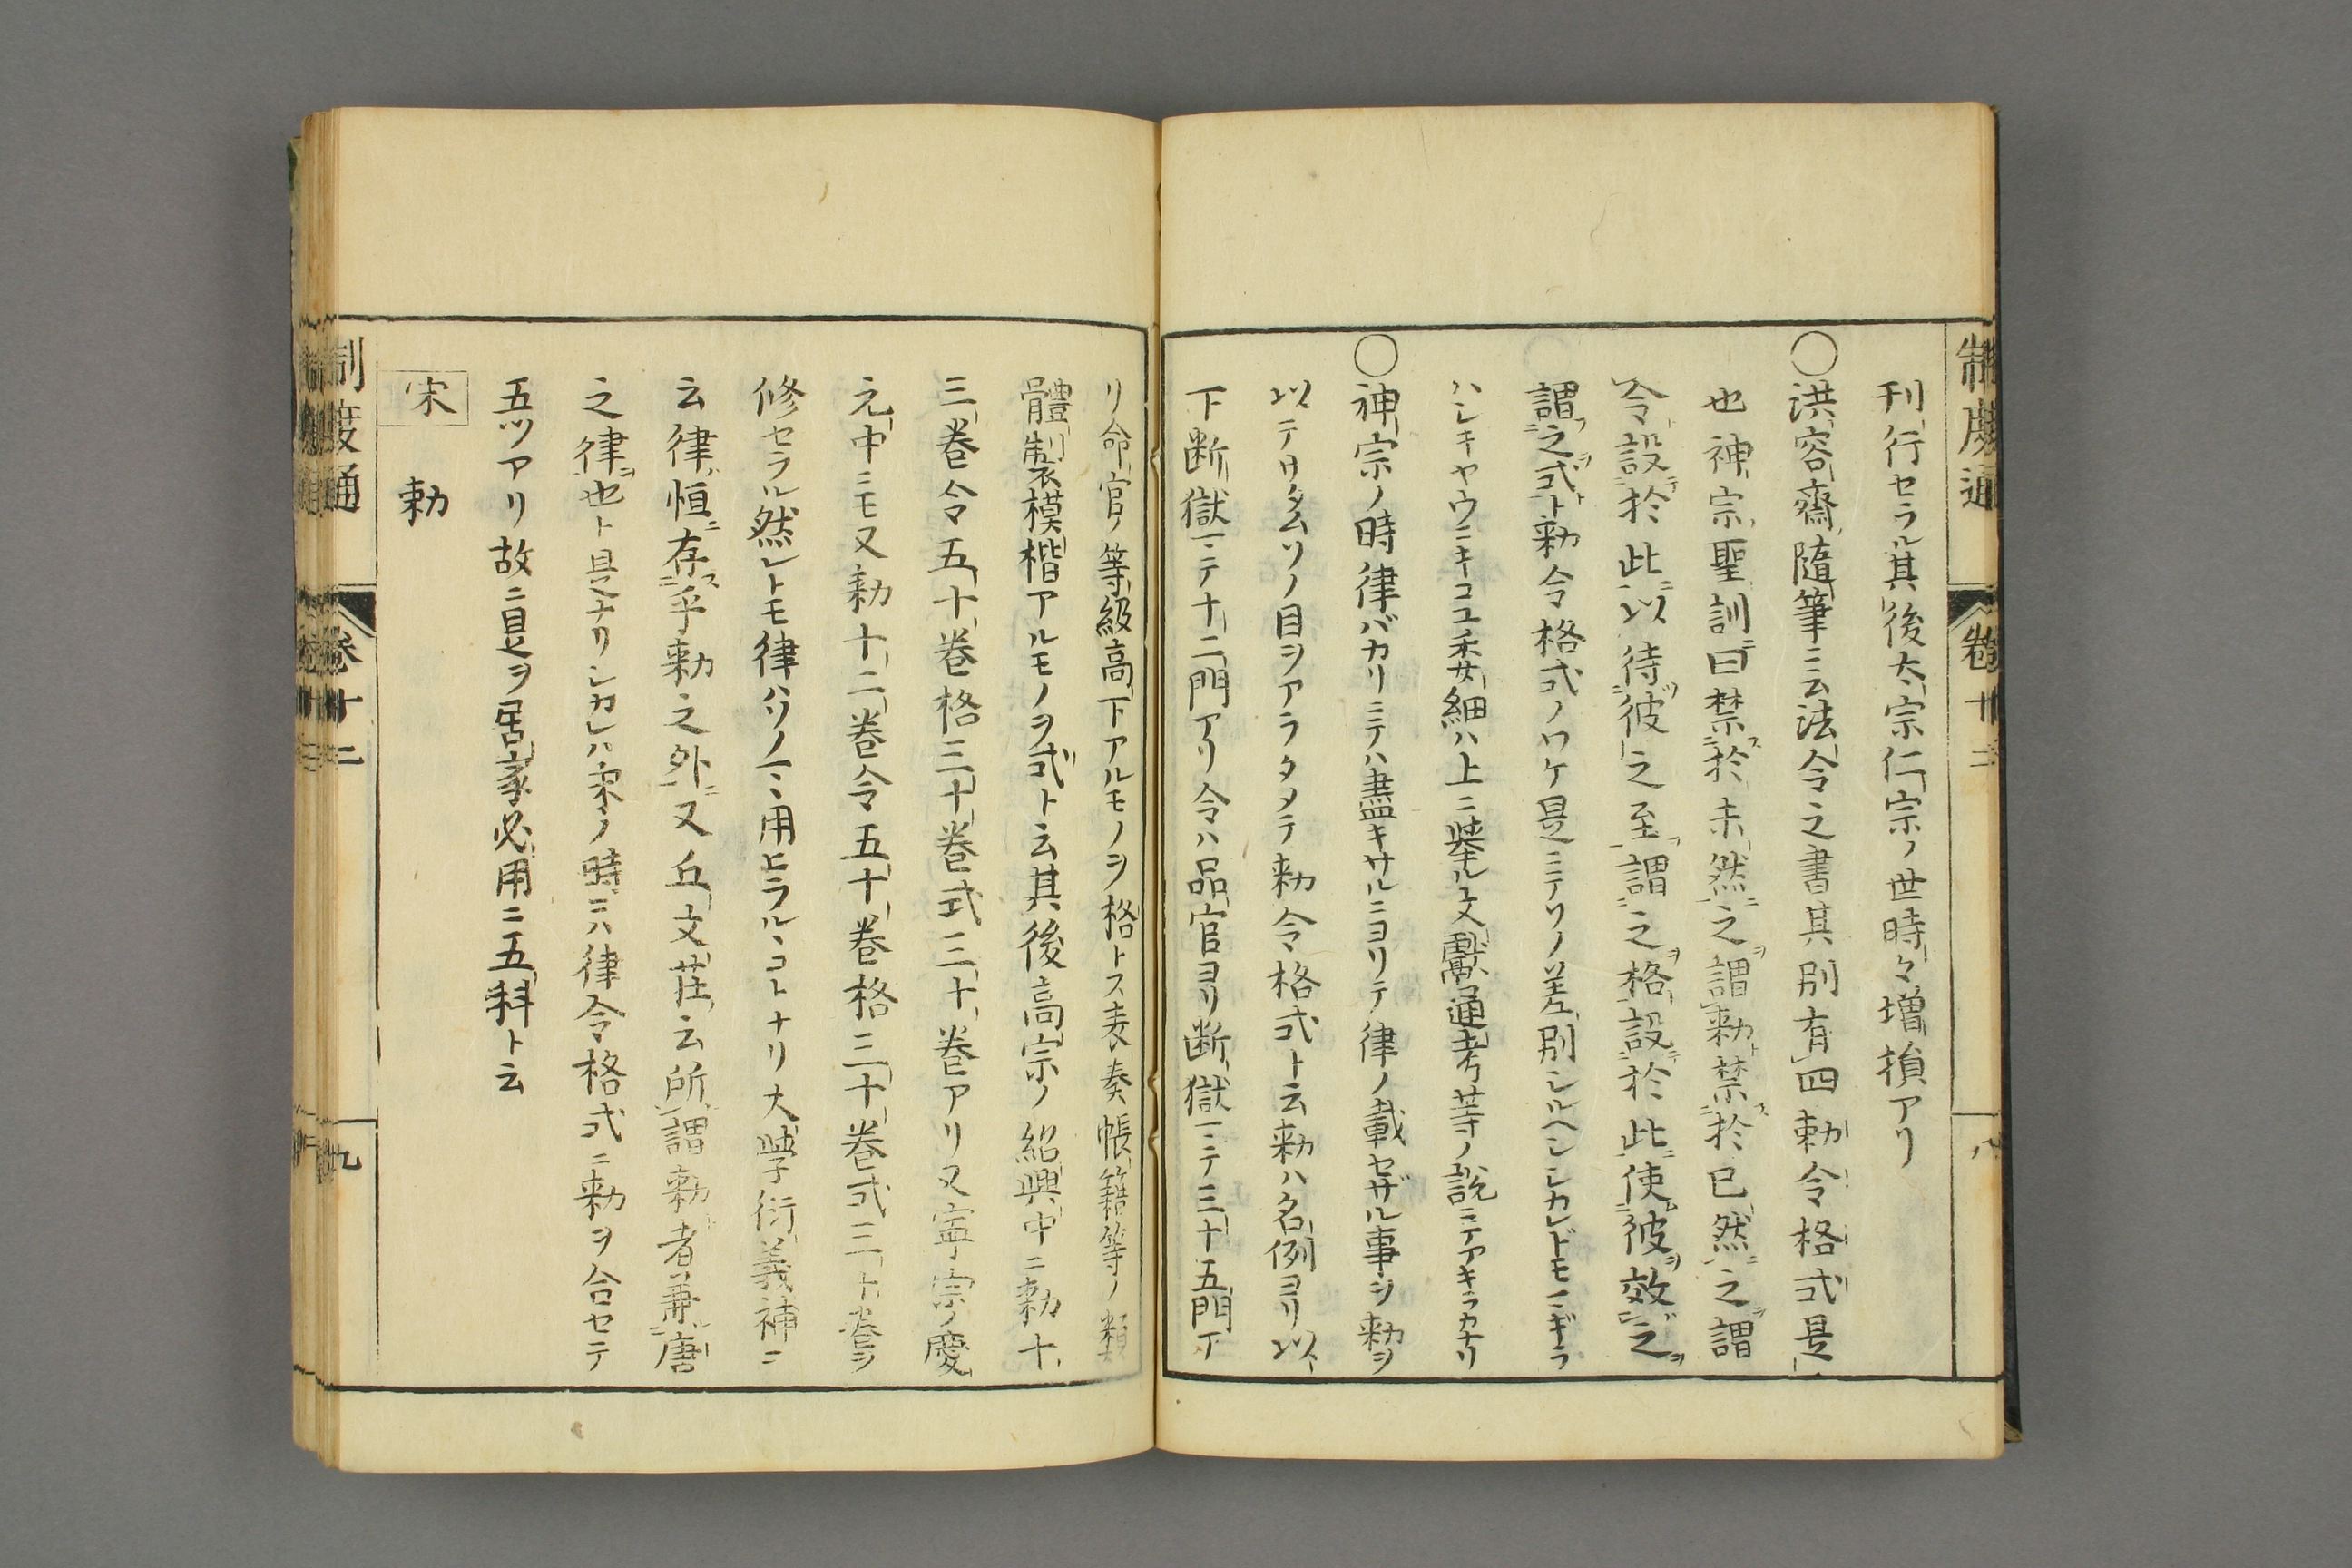 制度通 卷十二 八
刊行セラル其後太宗仁宗ノ世時々増損アリ
○洪容齋隨筆ニ云法令之書其別有四勅令格式是
也神宗聖訓曰禁於未然之謂勅禁於已然之謂
令設於此以待彼之至謂之格設於此使彼效之
謂之式ト勅令格式ノワケ是ニテソノ差別シルヘシシカレドモニギラ
ハシキヤウニキコユ委細ハ上ニ挙ル文獻通考等ノ說ニテアキラカナリ
○神宗ノ時律バカリニテハ盡キサルニヨリテ律ノ載セザル事ヲ勅ヲ
以テサタムソノ目ヲアラタメテ勅令格式ト云勅ハ名例ヨリ以
下断獄ニテ十二門アリ令ハ品官ヨリ断獄ニテ三十五門ア
リ命官ノ等級高下アルモノヲ格トス表奏帳籍等ノ類
體製模楷アルモノヲ式ト云其後高宗ノ紹興中ニ勅十
三卷令五十卷格三十卷式三十卷アリ又寧宗ノ慶
元中ニモ又勅十二卷令五十卷格三十卷式三十卷ヲ
修セラル然レトモ律ハソノマヽ用ヒラルヽコトナリ大學衍義補ニ
云律恒存乎勅之外又丘文荘云所謂勅者兼唐
之律也ト是ナリシカレハ宋ノ時ニハ律令格式ニ勅ヲ合セテ
五ツアリ故ニ是ヲ居家必用ニ五科ト云
宋 勅
制度通 卷十二 九